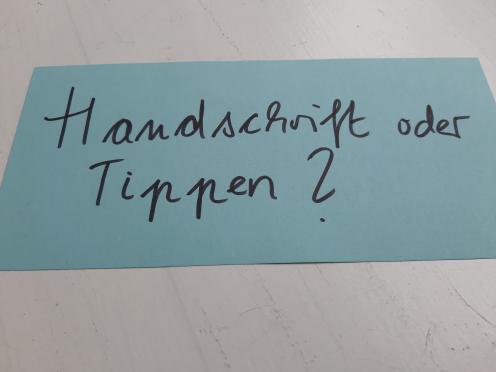 Handschrift oder
Tippen?